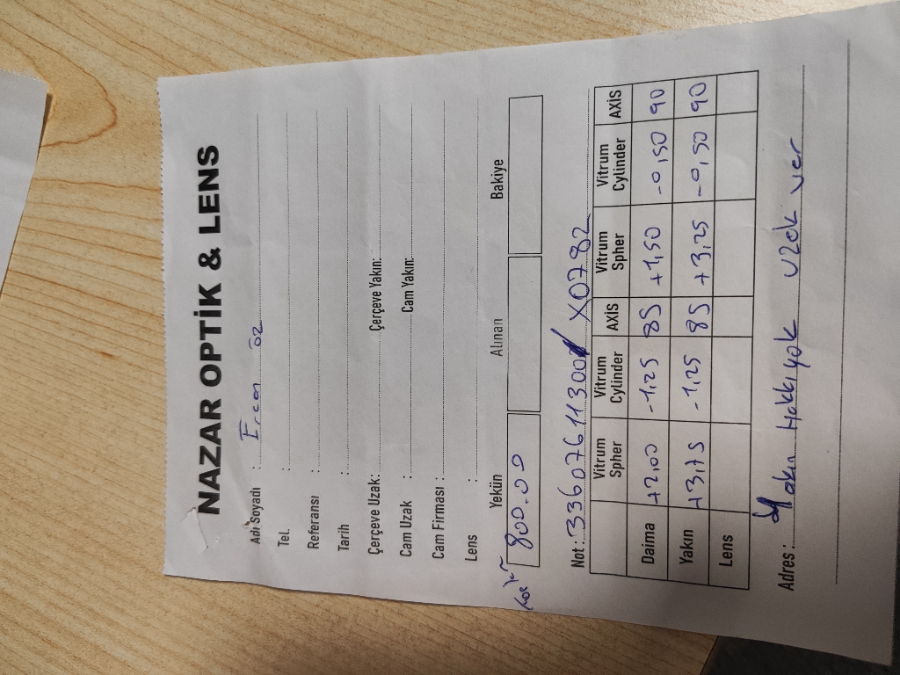 NAZAR OPTİK & LENS
Adı Soyadı : Ercan öz
Tel. :
Referansı :
Tarih :
Çerçeve Uzak: Çerçeve Yakın:
Cam Uzak : Cam Yakın:
Cam Firması :
Lens :
Yekün Alınan Bakiye
800.00
Not: 33607611300 X0782
Vitrum Spher Vitrum Cylinder AXİS Vitrum Spher Vitrum Cylinder AXİS
Daima +2,00 -1,25 85 +1,50 -0,50 90
Yakın +3,75 -1,25 85 +3,25 -0,50 90
Lens
Adres: Yakın Hakkıyok uzak ver